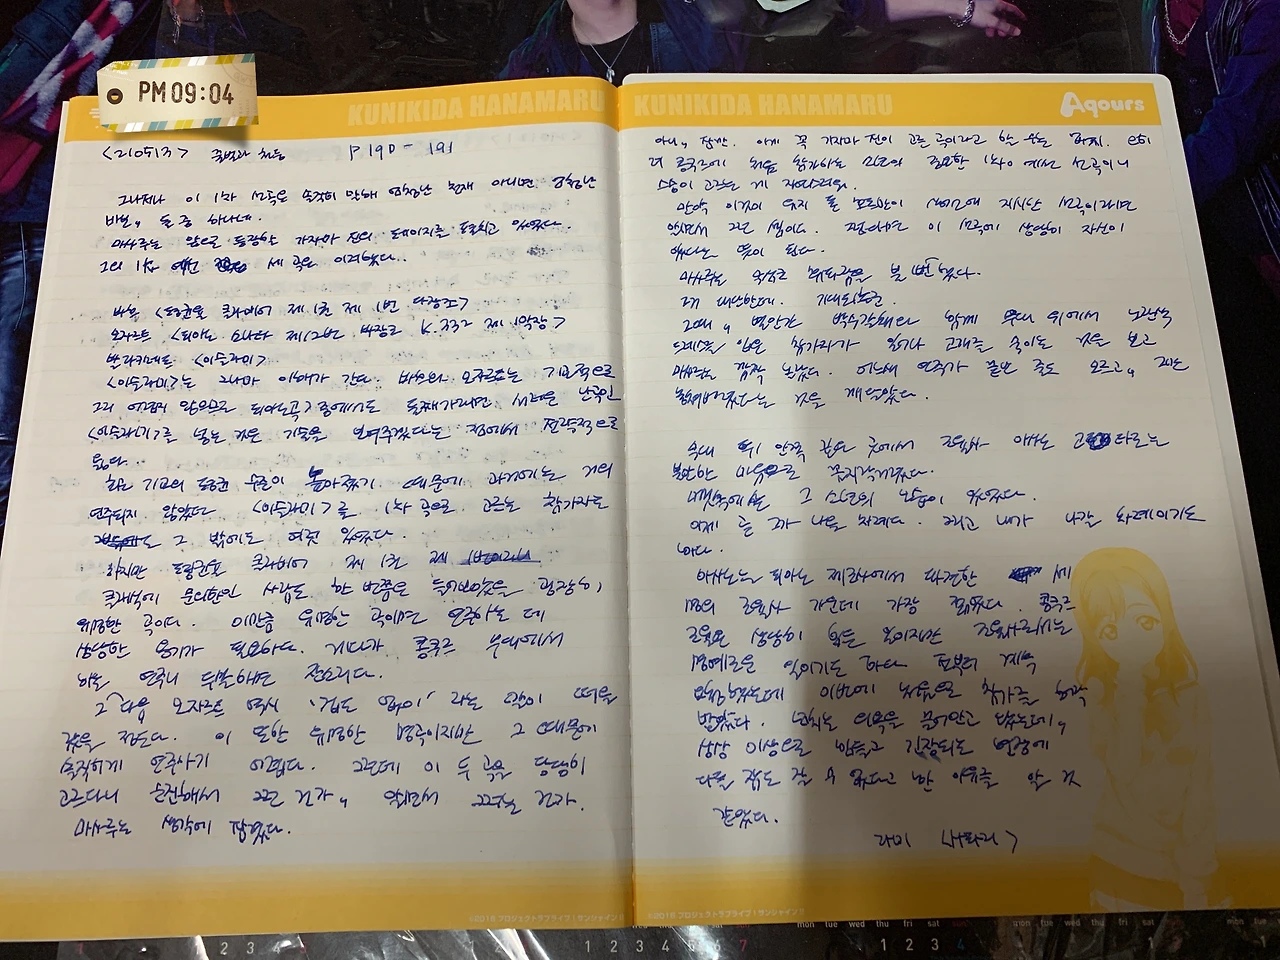 PM 09:04
KUNIKIDA HANAMARU
<210513> 꿀벌과 천둥 P 190 - 191
그나저나 이 1차 선곡은 솔직히 말해 엄청난 천재 아니면 엄청난
바보, 둘 중 하나네.
마사루는 앞으로 등장할 가자마 진의 페이지를 펼치고 있었다.
그의 1차 예선 세 곡은 이러했다.
바흐 <평균율 클라비어 제 1권 제 1번 다장조>
모차르트 <피아노 소나타 제12번 바장조 K.332 제 1악장>
발라키레프 <이슬라메이>
<이슬라메이>는 그나마 이해가 간다. 바흐와 모차르트는 기교적으로
그리 어렵지 않으므로 피아노곡 중에서도 둘째가라면 서러울 난곡인
<이슬라메이>를 넣는 것은 기술을 보여주겠다는 점에서 전략적으로
옳다.
최근 기교의 평균 수준이 높아졌기 때문에 과거에는 거의
연주되지 않았던 <이슬라메이>를 1차 곡으로 고르는 참가자는
그 밖에도 여럿 있었다.
하지만 평균율 클라비어 제 1권 제 1번이라니
클래식에 문외한인 사람도 한 번쯤은 들어보았을 굉장히
유명한 곡이다. 이만큼 유명한 곡이면 연주하는 데
상당한 용기가 필요하다. 게다가 콩쿠르 무대에서
하는 연주니 두말하면 잔소리다.
그 다음 모차르트 역시 '겁도 없이' 라는 말이 떠올
랐을 정도다. 이 또한 유명한 명곡이지만 그 때문에
솔직하게 연주하기 어렵다. 그런데 이 두 곡을 당당히
고르다니 순진해서 그런 건가, 알면서 그러는 건가.
마사루는 생각에 잠겼다.
©2016 プロジェクトラブライブ!サンシャイン!!
KUNIKIDA HANAMARU
Aqours
아니, 잠깐. 이게 꼭 가자마 진이 고른 곡이라고 할 수는 없지.
더 콩쿠르에 처음 참가하는 소년의 중요한 1차 예선 선곡이니
스승이 고르는 게 자연스러워.
만약 이것이 유지 폰 호프만이 생전에 지시한 선곡이라면
알면서 고른 셈이다. 호프만은 이 선곡에 상당히 자신이
있다는 뜻이 된다.
마사루는 작게 휘파람을 불 뻔 했다.
그거 대단한데. 기대되는군.
그때, 별안간 박수갈채와 함께 무대 위에서 녹색
드레스를 입은 참가자가 일어나 고개를 숙이는 것을 보고
마사루는 깜짝 놀랐다. 어느새 연주가 끝난 줄도 모르고, 그만
놓쳐버렸다는 것을 깨달았다.
무대 뒤 안쪽 깊은 곳에서 조율사 아사노 고타로는
불안한 마음으로 꼼지락거렸다.
머릿속에는 그 소년의 남음이 있었다.
이제 곧 그가 나올 차례다. 그리고 내가 나갈 차례이기도
하다.
아사노는 피아노 제조사에서 파견한 세
명의 조율사 가운데 가장 젊었다. 콩쿠르
조율은 상당히 힘든 일이지만 조율사로서는
명예로운 일이기도 하다. 전부터 계속
희망했는데 이번에 처음으로 참가를 허락
받았다. 넘치는 의욕을 끌어안고 왔는데,
상상 이상으로 바쁘고 긴장되는 현장에
다들 잠도 잘 수 없다고 한 이유를 알 것
같았다.
©2016 プロジェクトラブライブ!サンシャイン!!
mon tue wed thu fri sat
1 2 3 4 5 6 7